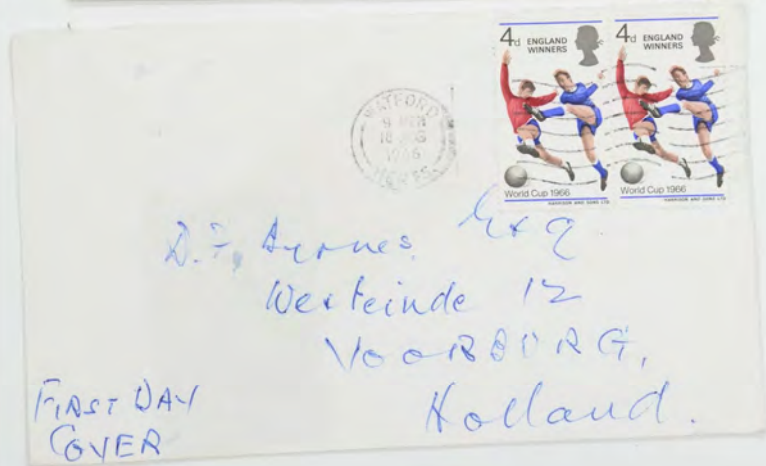 4d ENGLAND WINNERS
World Cup 1966
HARRISON AND SONS LTD
4d ENGLAND WINNERS
World Cup 1966
HARRISON AND SONS LTD
WATFORD
18 AUG
1966
HERTS
D.F. Byrnes Esq.
Westeinde 12
VOORBURG,
Holland.
FIRST DAY
COVER